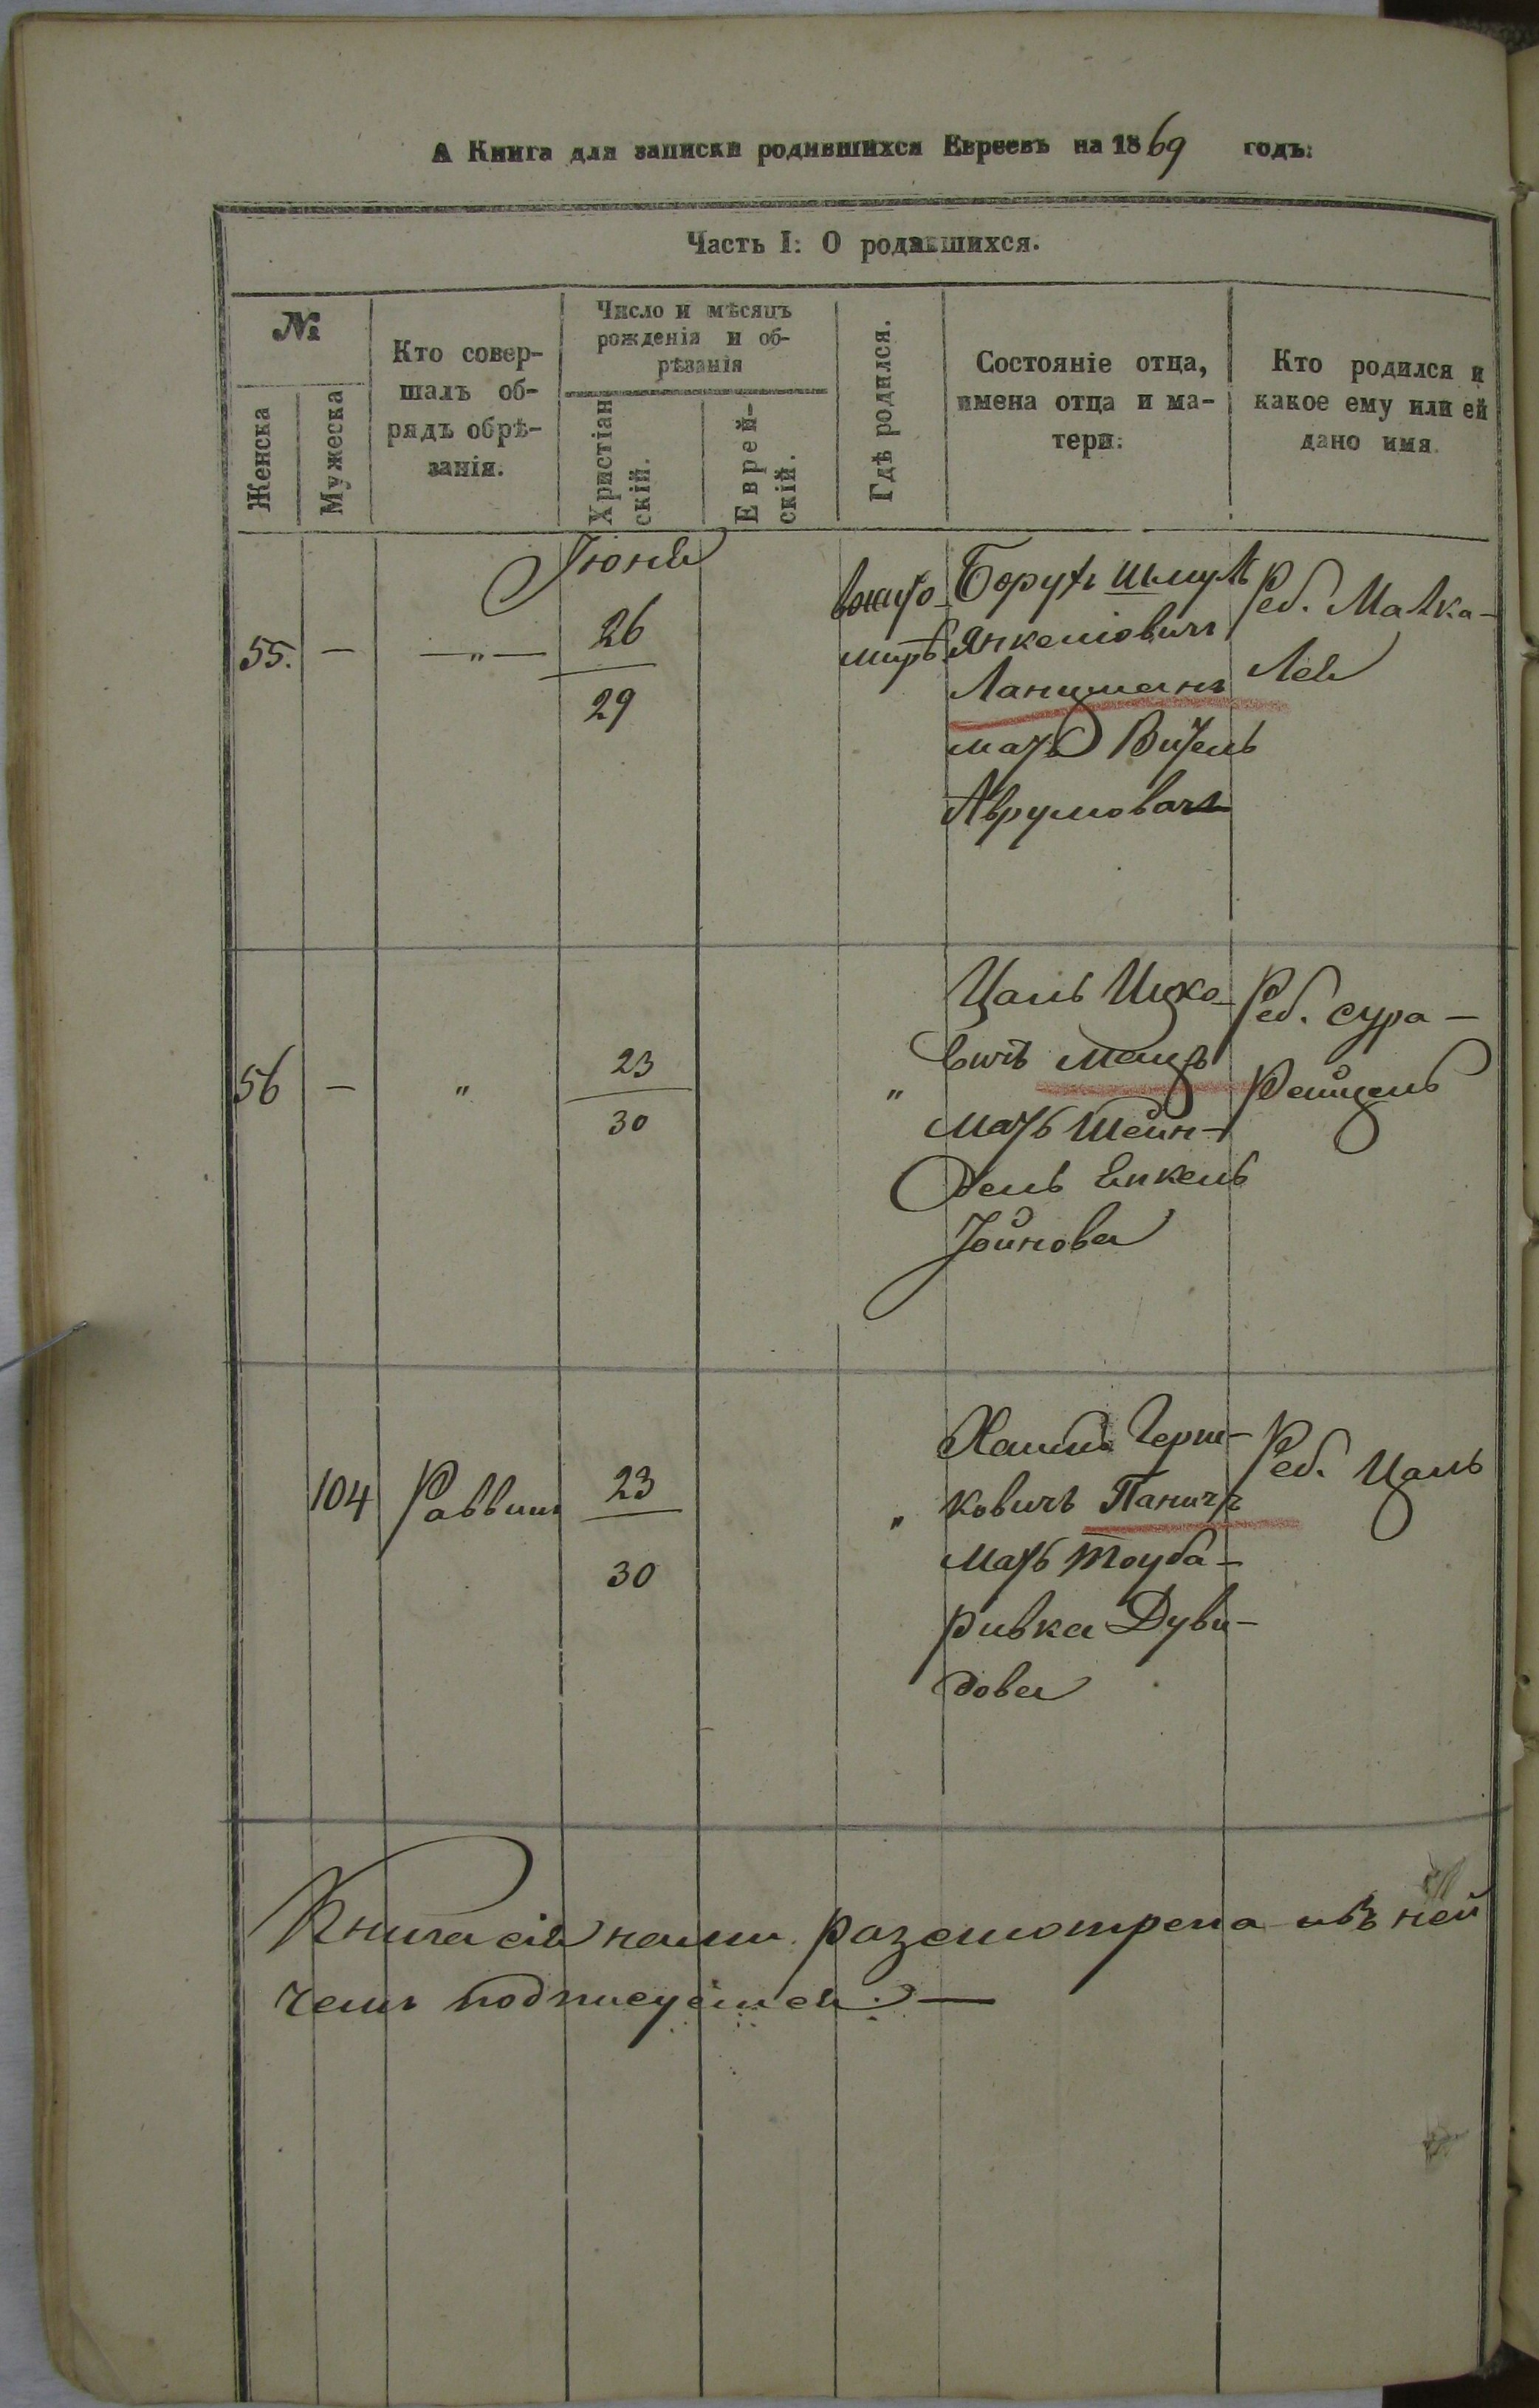 А Книга для записки родившихся Евреевъ на 1869 годъ:
Часть I: О родившихся.
№
Женска
Мужеска
Кто совер-
шалъ об-
рядъ обрѣ-
занія.
Число и мѣсяцъ
рожденія и об-
рѣзанія
Христіан
скій.
Еврей-
скій.
Гдѣ родился.
Состояніе отца,
имена отца и ма-
тери:
Кто родился и
какое ему или ей
дано имя.
Іюня
55.
—
—„—
26
29
вжито-
мирѣ
Борухъ Шмуль
Янкеліовичъ
Ланцманъ
мать Витель
Аврумовна
Реб. Малка-
Лея
56
—
„
23
30
„
Цаль Ицко-
вичъ Мацъ
мать Шейн-
дель Енкель
Іойнова
Реб. сура-
Рейцель
104
Раввинъ
23
30
„
Хаимъ Герш-
ковичъ Паничъ
мать Тоуба-
ривка Дуви-
дова
Реб. Цаль
Книга сія нами разсмотрена ивъ ней
чемъ подписуемся.—